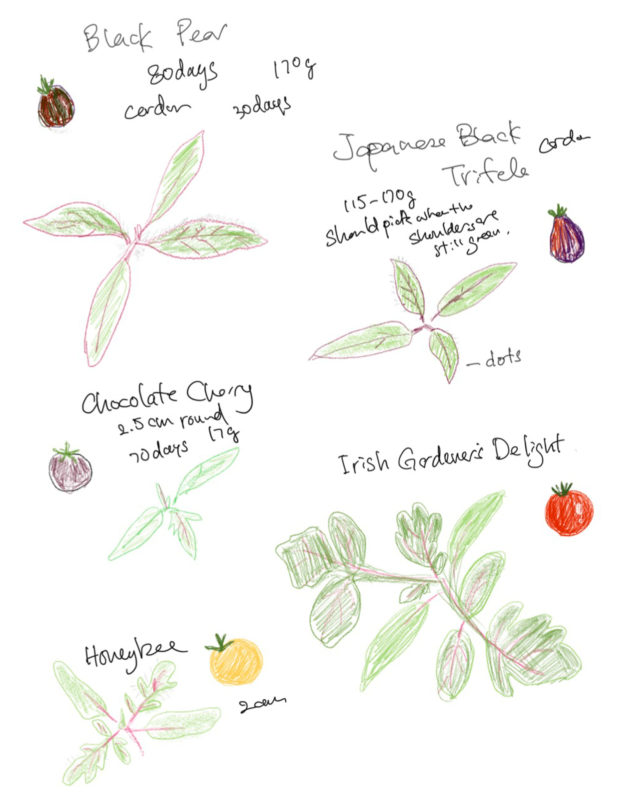 Black Pear
80days 170g
cordon 20days
Japanese Black
Trifele cordon
115-170g
Should pick when the
shoulders are
still green.
- dots
Chocolate Cherry
2.5cm round
70days 17g
Irish Gardener's Delight
Honeybee
2cm